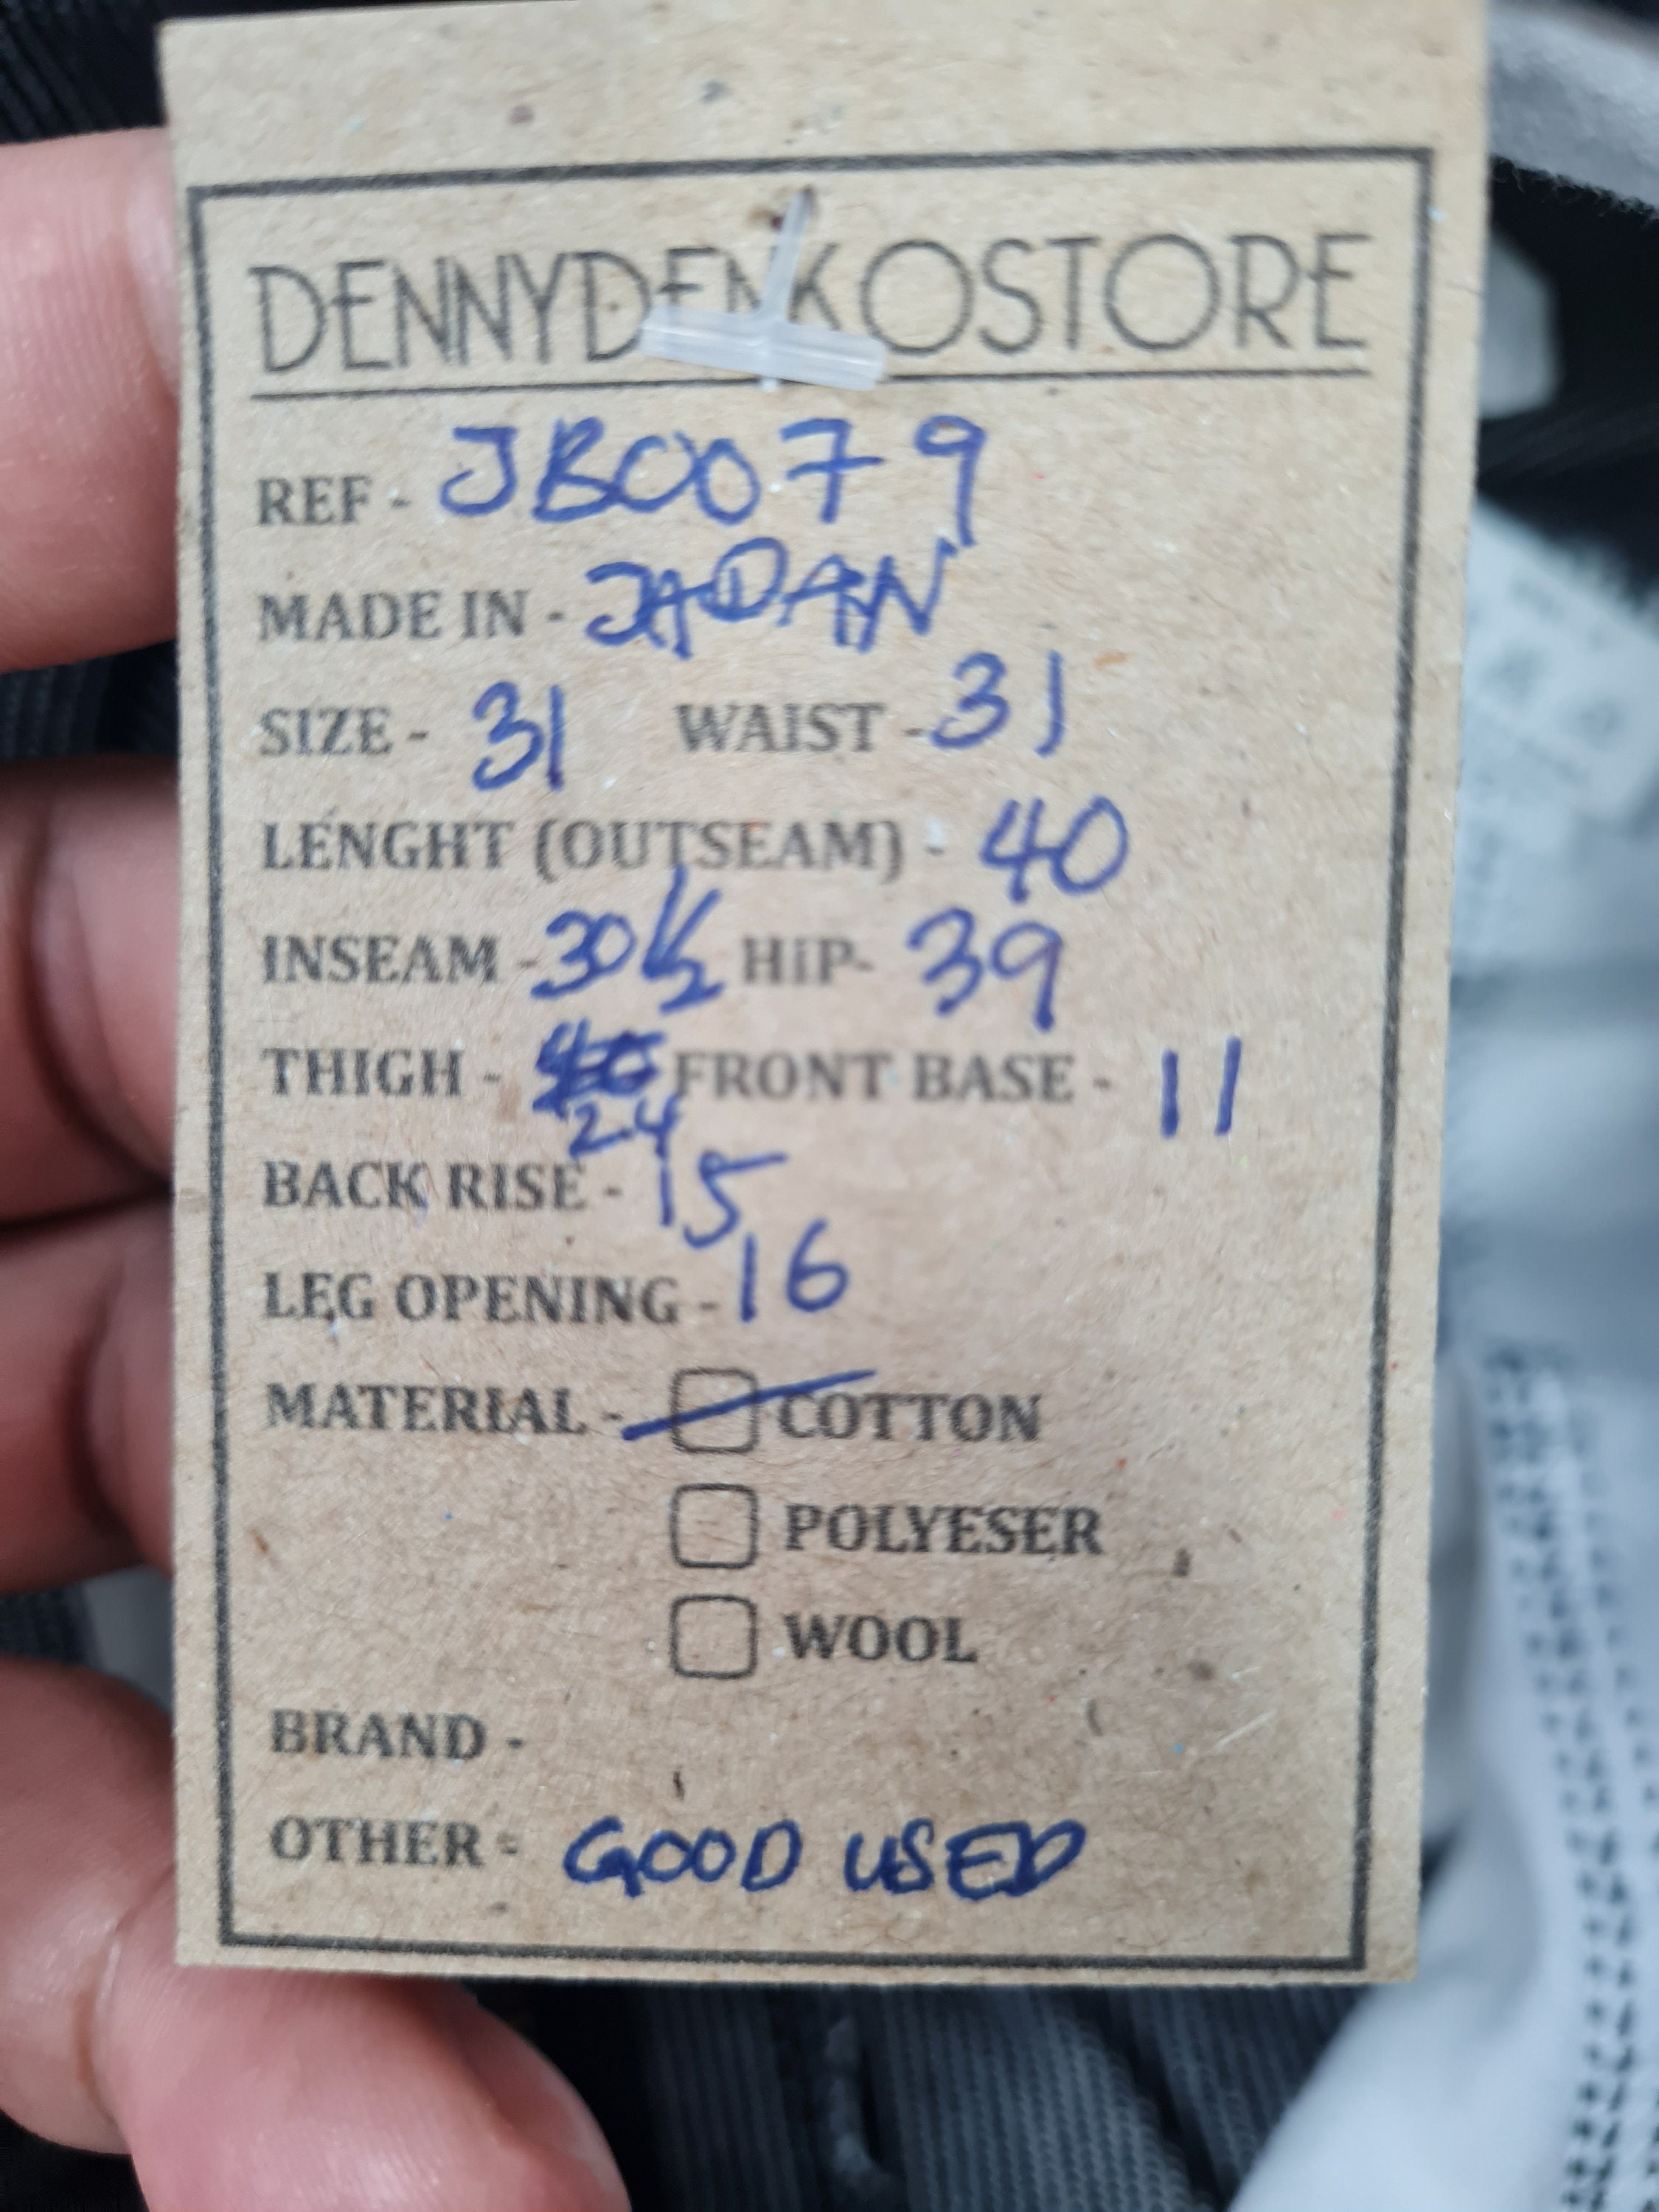 DENNYDENKOSTORE
REF - JB0079
MADE IN - JAPAN
SIZE - 31 WAIST - 31
LENGHT (OUTSEAM) - 40
INSEAM - 30 1/2 HiP- 39
THIGH - 24 FRONT BASE - 11
BACK RISE - 15
LEG OPENING - 16
MATERIAL - COTTON
POLYESER
WOOL
BRAND -
OTHER - GOOD USED